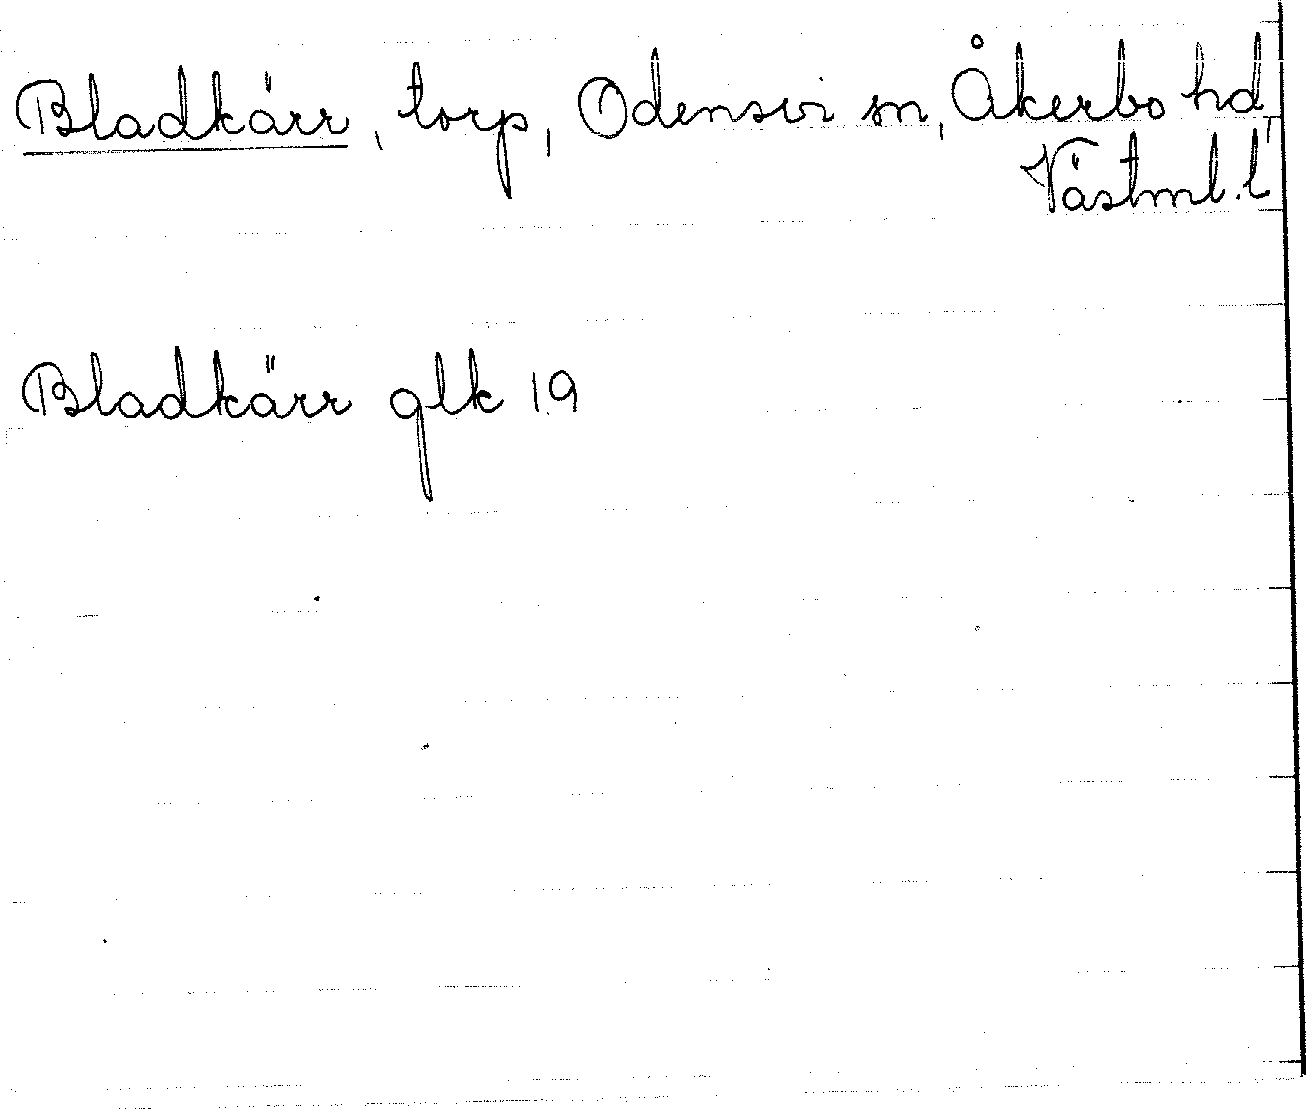 Bladkärr, torp, Odensvi sn, Åkerbo hd,
Västml. l
Bladkärr glk 19